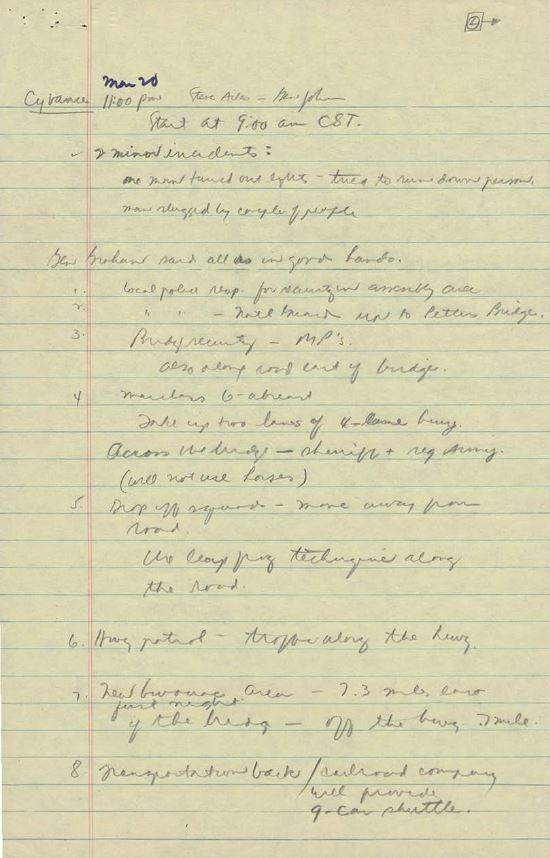 2
Mar 20
Cy Vance 11:00 pm Steve Ailes - Gen John
Start at 9:00 am CST.
2 minor incidents:
one man turned out lights - tried to run down person.
man slugged by couple of people
Gen Graham said all is in good hands.
1. Local police resp. for security in assembly area
2. " " - Natl Guard up to Pettus Bridge.
3. Bridge security - MP's.
also along road east of bridge.
4 Marchers 6-abreast
Take up two lanes of 4-lane hwy.
Across the bridge - sheriff + reg Army.
(will not use horses)
5. Drop off squads - move away from
road.
Use leap frog technique along
the road.
6. Hwy patrol - traffic along the hwy.
7. Tent bivouac area - 7.3 miles east
first night
of the bridge - off the hwy .7 mile.
8 Transportation back / railroad company
will provide
9-car shuttle.